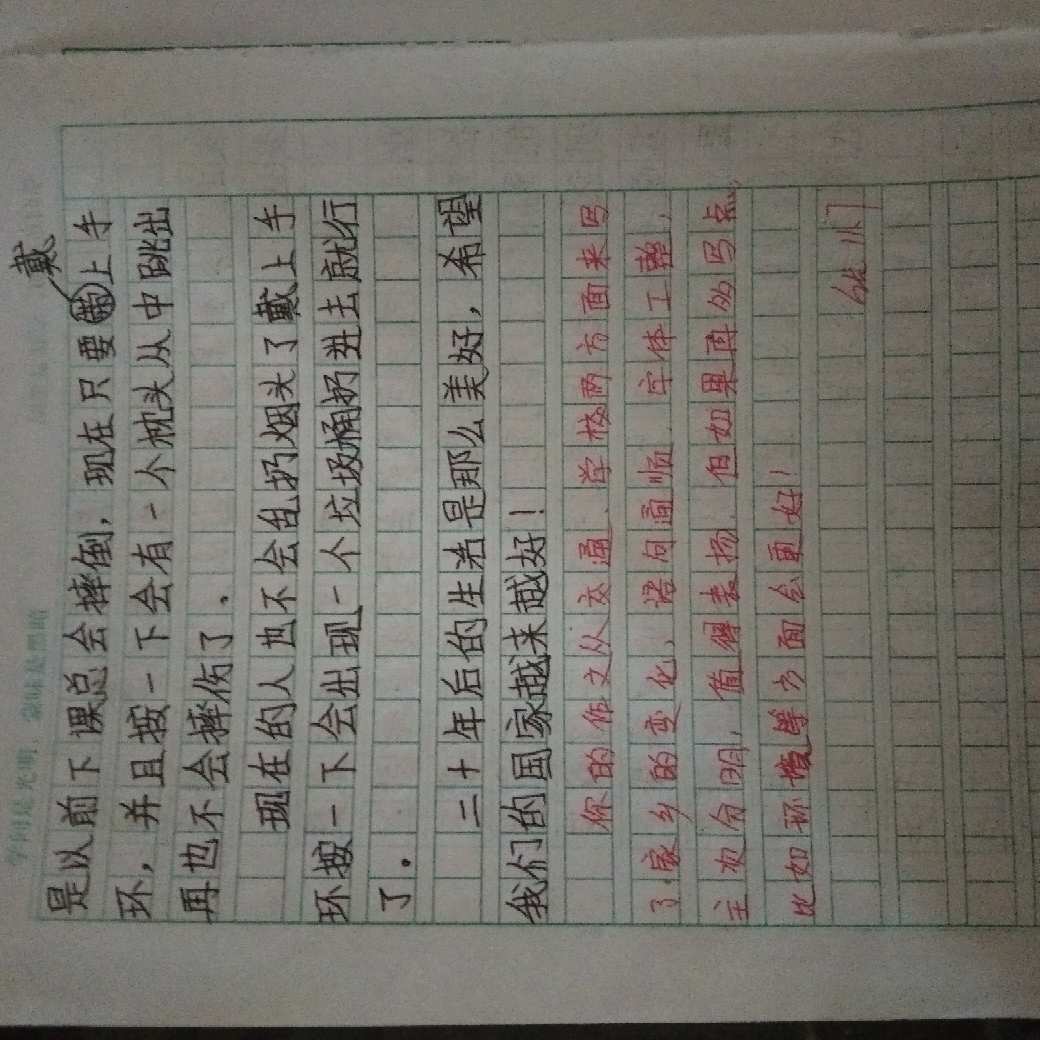 戴
是以前下课总会摔倒，现在只要带上手
环，并且按一下会有一个枕头从中跳出
再也不会摔伤了．
现在的人也不会乱扔烟头了戴上手
环按一下会出现一个垃圾桶扔进去就行
了．
二十年后的生活是那么美好，希望
我们的国家越来越好！
你的作文从交通、学校两方面来写
了家乡的变化，语句通顺．字体工整，
主次分明，值得表扬．但如果再多写点
比如环境等方面会更好！